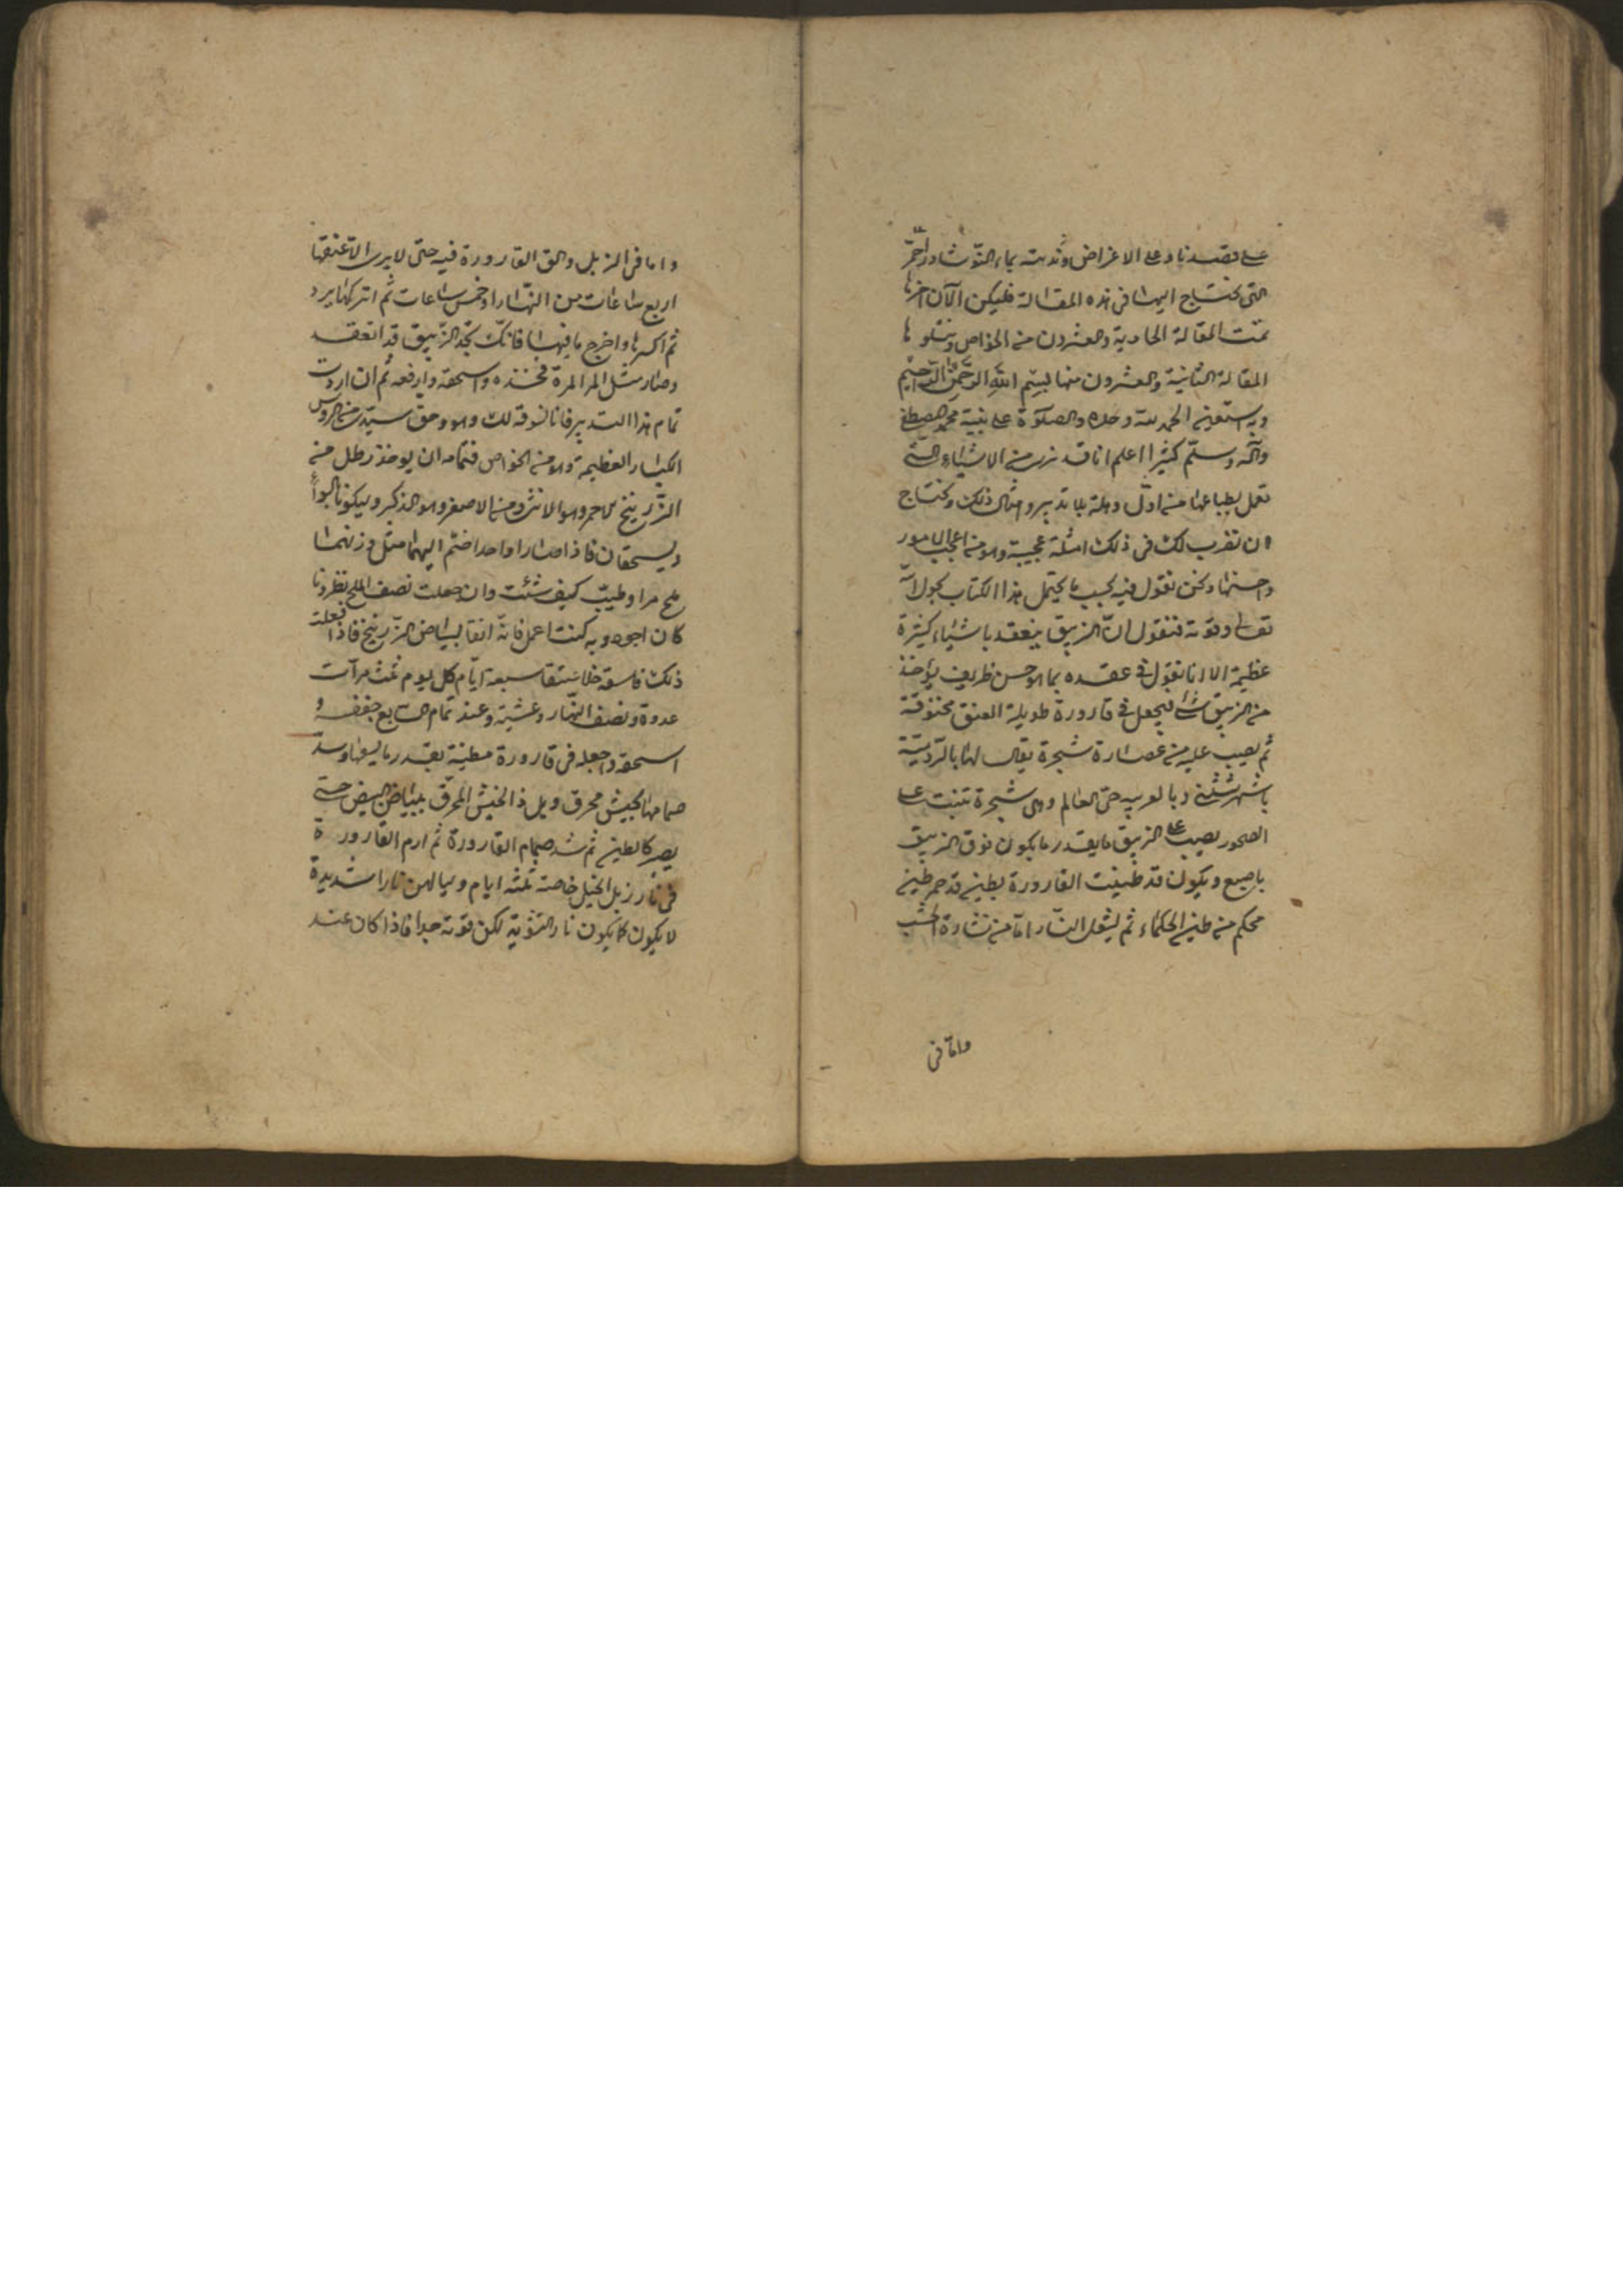 على قصدنا وعلى الاغراض وتدبته بماء النوشادر احمر
التى نحتاج اليها فى هذه المقالة فليكن الآن اخرها
تمت المقالة الحادية والعشرون من الخواص ويتلوها
المقالة الثانية والعشرون منها بسم الله الرحمن الرحيم
وبه استعين الحمد لله وحده والصلوة على نبيه محمد المصطفى
وآله وسلم كثيرا اعلم انا قد نرى من الاشياء التى
تعمل بطباعها من اول وهلة بلا تدبير وامثال ذلك ونحتاج
ان نقرب لك فى ذلك امثلة عجيبة وهو من اعجب الامور
واحسنها ونحن نقول فيه بحسب ما يحتمل هذا الكتاب بحول الله
تعالى وقوته فنقول ان الزيبق ينعقد باشياء كثيرة
عظيمة الا انا نقول فى عقده بما هو حسن ظريف يؤخذ
من الزيبق شئ فيجعل فى قارورة طويلة العنق مخنوقة
ثم يصب عليه من عصارة شجرة يقال لها بالرومية
وبالعربيه حى العالم وهى شجرة تنبت على
الصخور يصب على الزيبق ما يقدر ما يكون فوق الزيبق
باصبع ويكون قد طينت القارورة بطين قد خمر طين
محكم من طين الحكماء ثم يشعل النار اما من نشارة الخشب
واما فى
واما فى الزبل والق القارورة فيه حتى لا يرى الا عنقها
اربع ساعات من النهار او خمس ساعات ثم اتركها يبرد
ثم اكسرها واخرج ما فيها فانك تجد الزيبق قد انعقد
وصار مثل المر المرة فخذه واسحقه وارفعه ثم ان اردت
تمام هذا التدبير فانا نسوقه لك وهو وحق سيدى من الدروس
الكبار العظيمة وهو من الخواص فتمامه ان يوخذ رطل من
الزرنيخ الاحمر وهو الانثى ومن الاصفر وهو الذكر وليكونا بالسواء
ويسحقان فاذا صارا واحدا ضم اليهما مثل وزنهما
ملح مرا وطيب كيف شئت وان جعلت نصف الملح نطرونا
كان اجود وبه كنت اعمل فانه انقا لبياض الزرنيخ فاذا فعلت
ذلك فاسقه خلا ثقيفا سبعة ايام كل يوم ثلث مرات
غدوة ونصف النهار وعشية وعند تمام السابع جففه و
اسحقه واجعله فى قارورة مطينة بقدر ما يسعها وسد
صمامها بخيش محرق وبل ذا الخيش المحرق ببياض البيض حتى
يصير كالطين ثم شد صمام القارورة ثم ارم القارورة
فى نار زبل الخيل خاصة ثلثه ايام وليالهن نارا شديدة
لا يكون كما يكون نار التشوية لكن قوته جدا فاذا كان عند